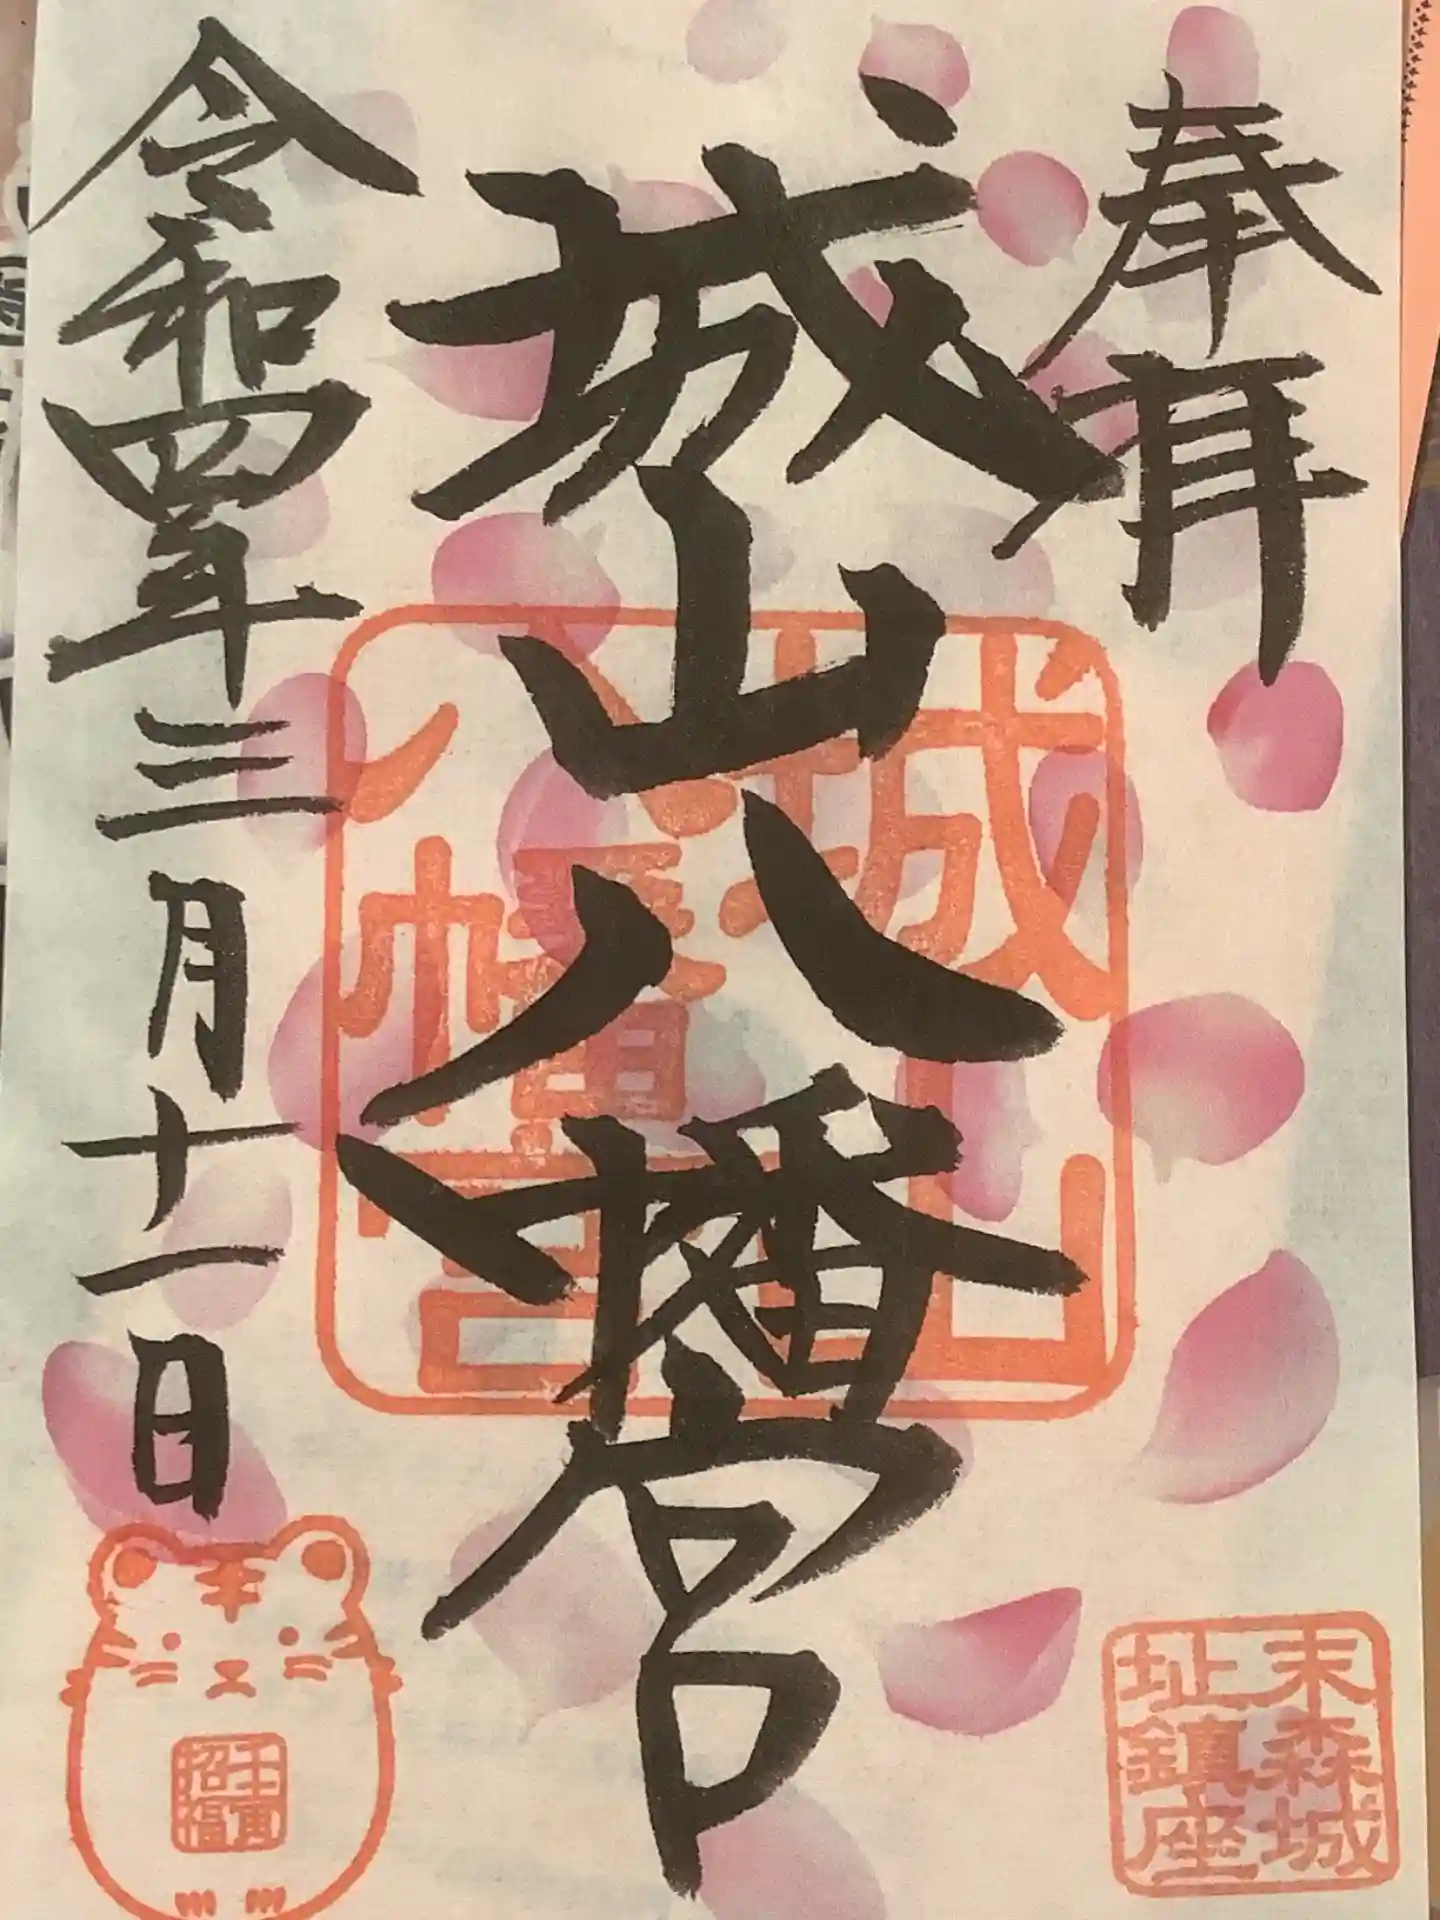 奉拝
城山八幡宮
令和四年三月十一日
城山
八幡宮
末森城
址鎮座
壬寅
招福